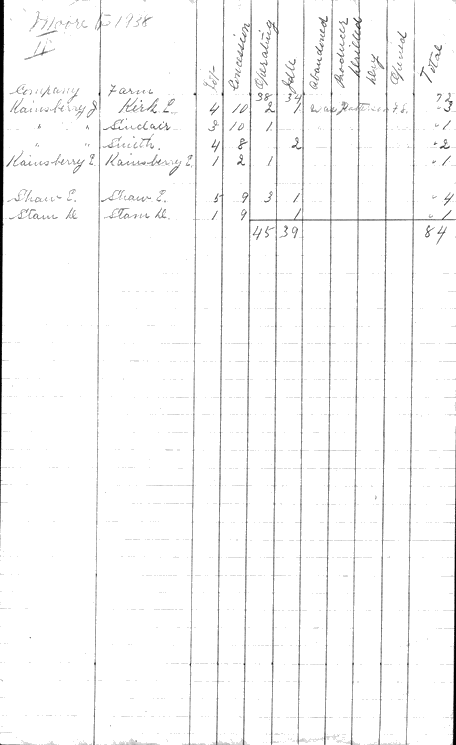 Moore Tp 1938
II
Company Farm Lot Concession Operating Idle Abandoned Producer Drilled Dry Opened Total
38 34 72
Rainsberry J Kirk E. 4 10 2 1 was 3
" " Sinclair 3 10 1 " 1
" " Smith. 4 8 2 " 2
Rainsberry E. Rainsberry E. 1 2 1 " 1
Shaw E. Shaw E. 5 9 3 1 " 4
Stam D. Stam D. 1 9 1 " 1
45 39 84